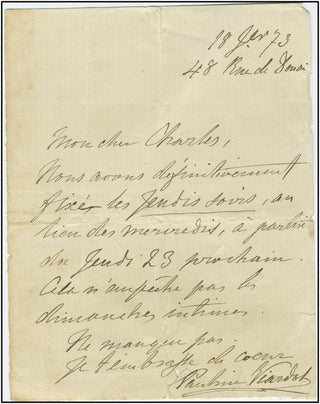 18 Jer 73
48 Rue de Douai
Mon cher Charles,
Nous avons définitivement
fixé les Jeudis soirs, au
lieu des mercredis, à partir
du Jeudi 23 prochain.
Cela n'empêche pas les
dimanches intimes.
Ne manquez pas
Je t'embrasse de coeur
Pauline Viardot